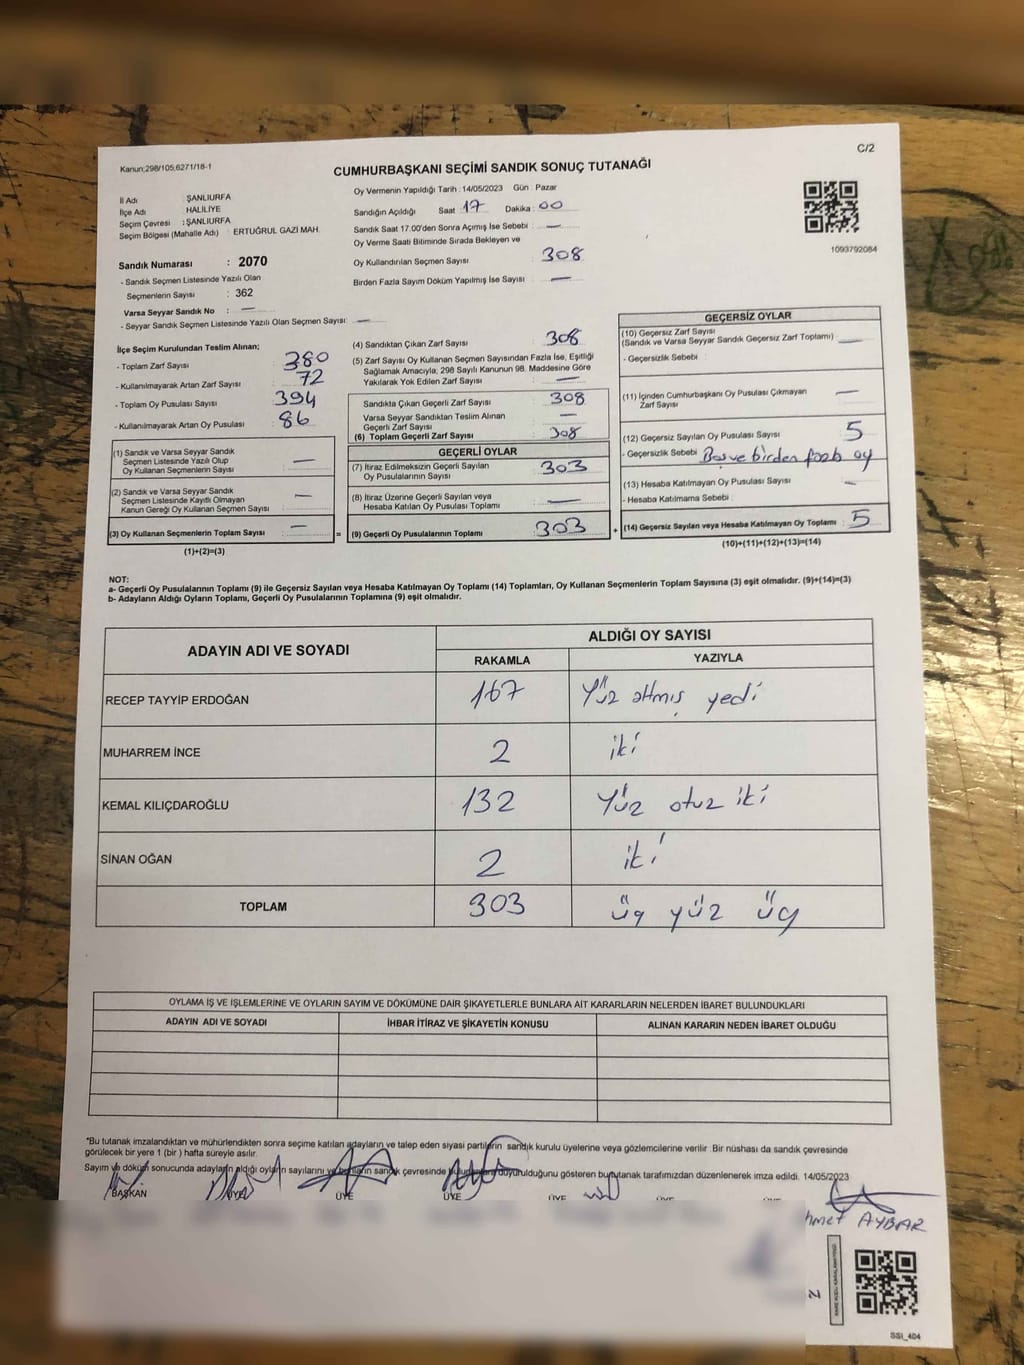 C/2
Kanun;298/105;6271/18-1
CUMHURBAŞKANI SEÇİMİ SANDIK SONUÇ TUTANAĞI
İl Adı : ŞANLIURFA
İlçe Adı HALİLİYE
Seçim Çevresi : ŞANLIURFA
Seçim Bölgesi (Mahalle Adı) : ERTUĞRUL GAZİ MAH.
Sandık Numarası : 2070
- Sandık Seçmen Listesinde Yazılı Olan
Seçmenlerin Sayısı : 362
Varsa Seyyar Sandık No : —
- Seyyar Sandık Seçmen Listesinde Yazılı Olan Seçmen Sayısı: —
Oy Vermenin Yapıldığı Tarih : 14/05/2023 Gün : Pazar
Sandığın Açıldığı Saat 17 Dakika : 00
Sandık Saat 17.00'den Sonra Açımış İse Sebebi : —
Oy Verme Saati Bitiminde Sırada Bekleyen ve
Oy Kullandırılan Seçmen Sayısı : 308
Birden Fazla Sayım Döküm Yapılmış İse Sayısı : —
1093792084
İlçe Seçim Kurulundan Teslim Alınan;
- Toplam Zarf Sayısı : 380
- Kullanılmayarak Artan Zarf Sayısı : 72
- Toplam Oy Pusulası Sayısı : 394
- Kullanılmayarak Artan Oy Pusulası : 86
(1) Sandık ve Varsa Seyyar Sandık
Seçmen Listesinde Yazılı Olup
Oy Kullanan Seçmenlerin Sayısı : —
(2) Sandık ve Varsa Seyyar Sandık
Seçmen Listesinde Kayıtlı Olmayan
Kanun Gereği Oy Kullanan Seçmen Sayısı : —
(3) Oy Kullanan Seçmenlerin Toplam Sayısı : — =
(1)+(2)=(3)
(4) Sandıktan Çıkan Zarf Sayısı : 308
(5) Zarf Sayısı Oy Kullanan Seçmen Sayısından Fazla İse, Eşitliği
Sağlamak Amacıyla; 298 Sayılı Kanunun 98. Maddesine Göre
Yakılarak Yok Edilen Zarf Sayısı : —
Sandıkta Çıkan Geçerli Zarf Sayısı : 308
Varsa Seyyar Sandıktan Teslim Alınan
Geçerli Zarf Sayısı : —
(6) Toplam Geçerli Zarf Sayısı : 308
GEÇERLİ OYLAR
(7) İtiraz Edilmeksizin Geçerli Sayılan
Oy Pusulalarının Sayısı : 303
(8) İtiraz Üzerine Geçerli Sayılan veya
Hesaba Katılan Oy Pusulası Toplamı : —
(9) Geçerli Oy Pusulalarının Toplamı : 303 +
GEÇERSİZ OYLAR
(10) Geçersiz Zarf Sayısı
(Sandık ve Varsa Seyyar Sandık Geçersiz Zarf Toplamı) : —
- Geçersizlik Sebebi :
(11) İçinden Cumhurbaşkanı Oy Pusulası Çıkmayan
Zarf Sayısı : —
(12) Geçersiz Sayılan Oy Pusulası Sayısı : 5
- Geçersizlik Sebebi : Boş ve birden fazla oy
(13) Hesaba Katılmayan Oy Pusulası Sayısı : —
- Hesaba Katılmama Sebebi :
(14) Geçersiz Sayılan veya Hesaba Katılmayan Oy Toplamı : 5
(10)+(11)+(12)+(13)=(14)
NOT:
a- Geçerli Oy Pusulalarının Toplamı (9) ile Geçersiz Sayılan veya Hesaba Katılmayan Oy Toplamı (14) Toplamları, Oy Kullanan Seçmenlerin Toplam Sayısına (3) eşit olmalıdır. (9)+(14)=(3)
b- Adayların Aldığı Oyların Toplamı, Geçerli Oy Pusulalarının Toplamına (9) eşit olmalıdır.
ADAYIN ADI VE SOYADI ALDIĞI OY SAYISI
RAKAMLA YAZIYLA
RECEP TAYYİP ERDOĞAN 167 Yüz altmış yedi
MUHARREM İNCE 2 iki
KEMAL KILIÇDAROĞLU 132 Yüz otuz iki
SİNAN OĞAN 2 iki
TOPLAM 303 üç yüz üç
OYLAMA İŞ VE İŞLEMLERİNE VE OYLARIN SAYIM VE DÖKÜMÜNE DAİR ŞİKAYETLERLE BUNLARA AİT KARARLARIN NELERDEN İBARET BULUNDUKLARI
ADAYIN ADI VE SOYADI İHBAR İTİRAZ VE ŞİKAYETİN KONUSU ALINAN KARARIN NEDEN İBARET OLDUĞU
*Bu tutanak imzalandıktan ve mühürlendikten sonra seçime katılan adayların ve talep eden siyasi partilerin sandık kurulu üyelerine veya gözlemcilerine verilir. Bir nüshası da sandık çevresinde
görülecek bir yere 1 (bir ) hafta süreyle asılır.
Sayım ve döküm sonucunda adayların aldığı oyların sayılarını ve bunların sandık çevresinde duyurulduğunu gösteren bu tutanak tarafımızdan düzenlenerek imza edildi. 14/05/2023
BAŞKAN ÜYE ÜYE ÜYE ÜYE
AYBAR
SSİ_404